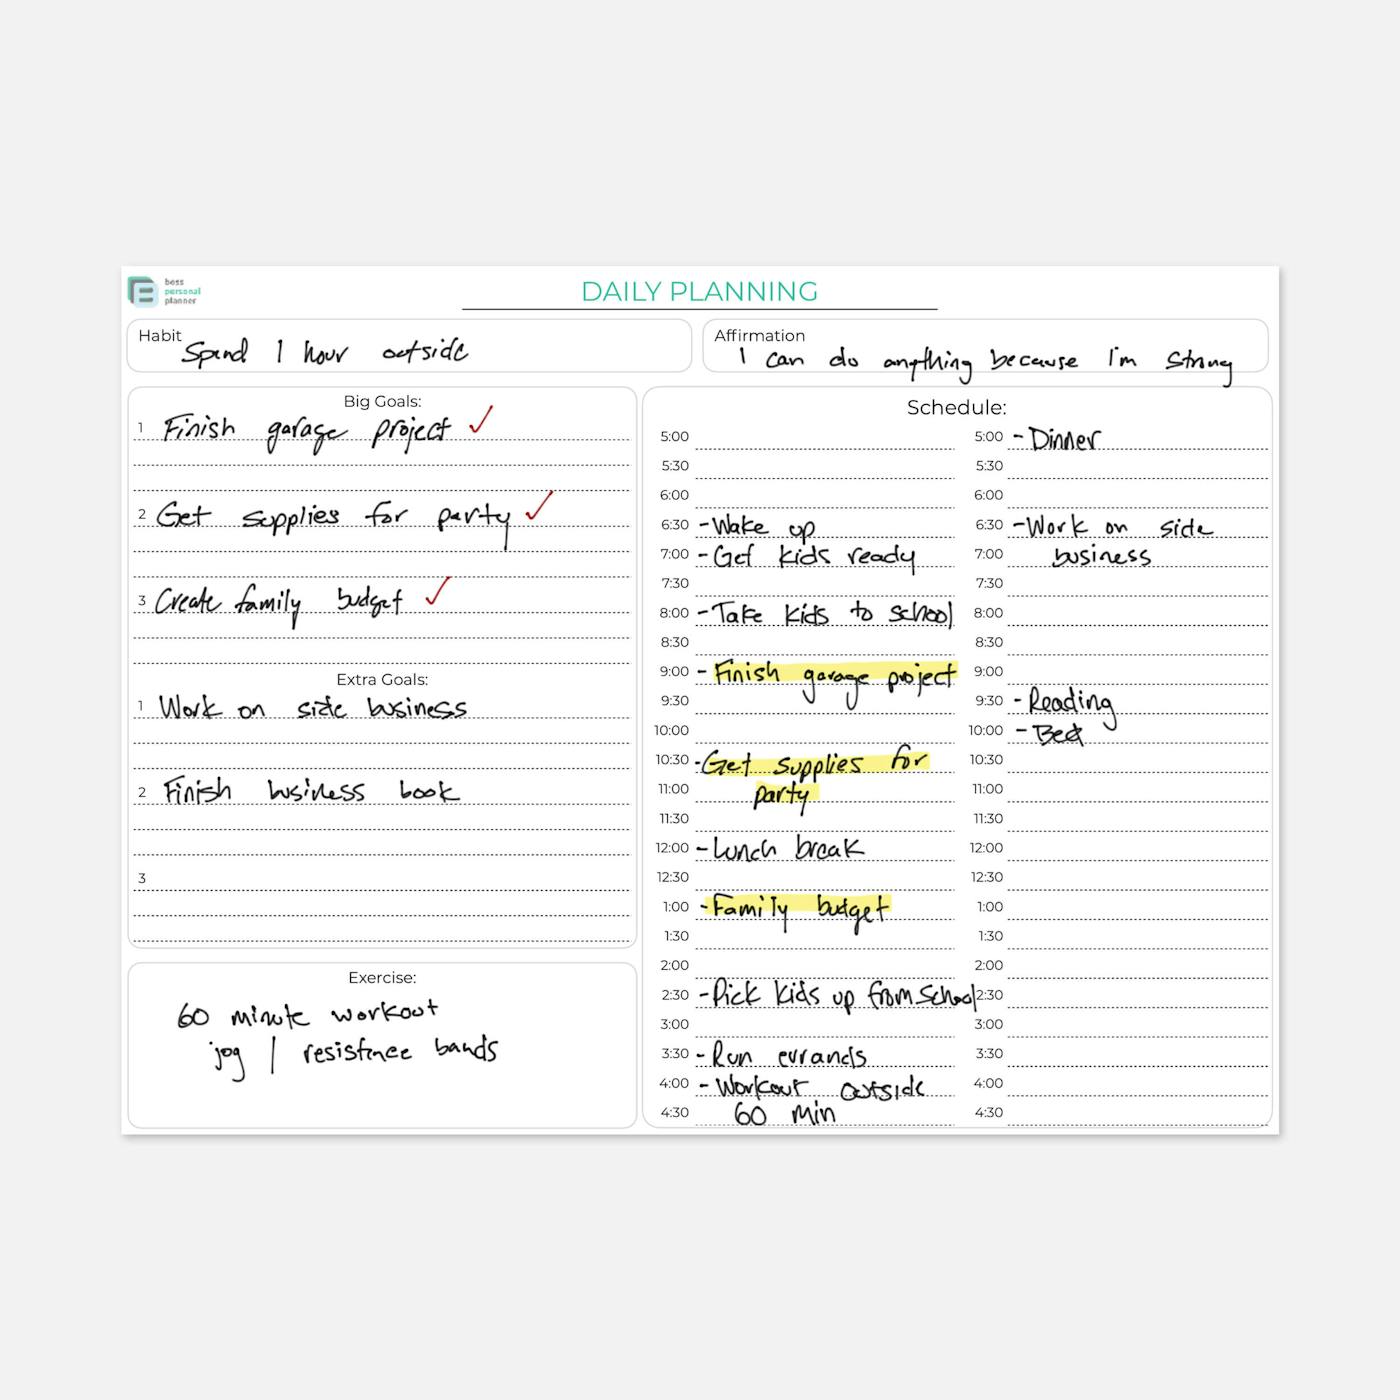 boss
personal
planner
DAILY PLANNING
Habit
Spend 1 hour outside
Affirmation
I can do anything because I'm strong
Big Goals:
1 Finish garage project ✓
2 Get supplies for party ✓
3 Create family budget ✓
Extra Goals:
1 Work on side business
2 Finish business book
3
Exercise:
60 minute workout
jog / resistance bands
Schedule:
5:00
5:30
6:00
6:30 - Wake up
7:00 - Get kids ready
7:30
8:00 - Take kids to school
8:30
9:00 - Finish garage project
9:30
10:00
10:30 - Get supplies for
11:00 party
11:30
12:00 - Lunch break
12:30
1:00 - Family budget
1:30
2:00
2:30 - Pick kids up from school
3:00
3:30 - Run errands
4:00 - Workout outside
4:30 60 min
5:00 - Dinner
5:30
6:00
6:30 - Work on side
7:00 business
7:30
8:00
8:30
9:00
9:30 - Reading
10:00 - Bed
10:30
11:00
11:30
12:00
12:30
1:00
1:30
2:00
2:30
3:00
3:30
4:00
4:30